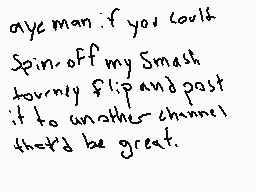 aye man if you could
Spin-off my Smash
tourney flip and post
it to another channel
that'd be great.